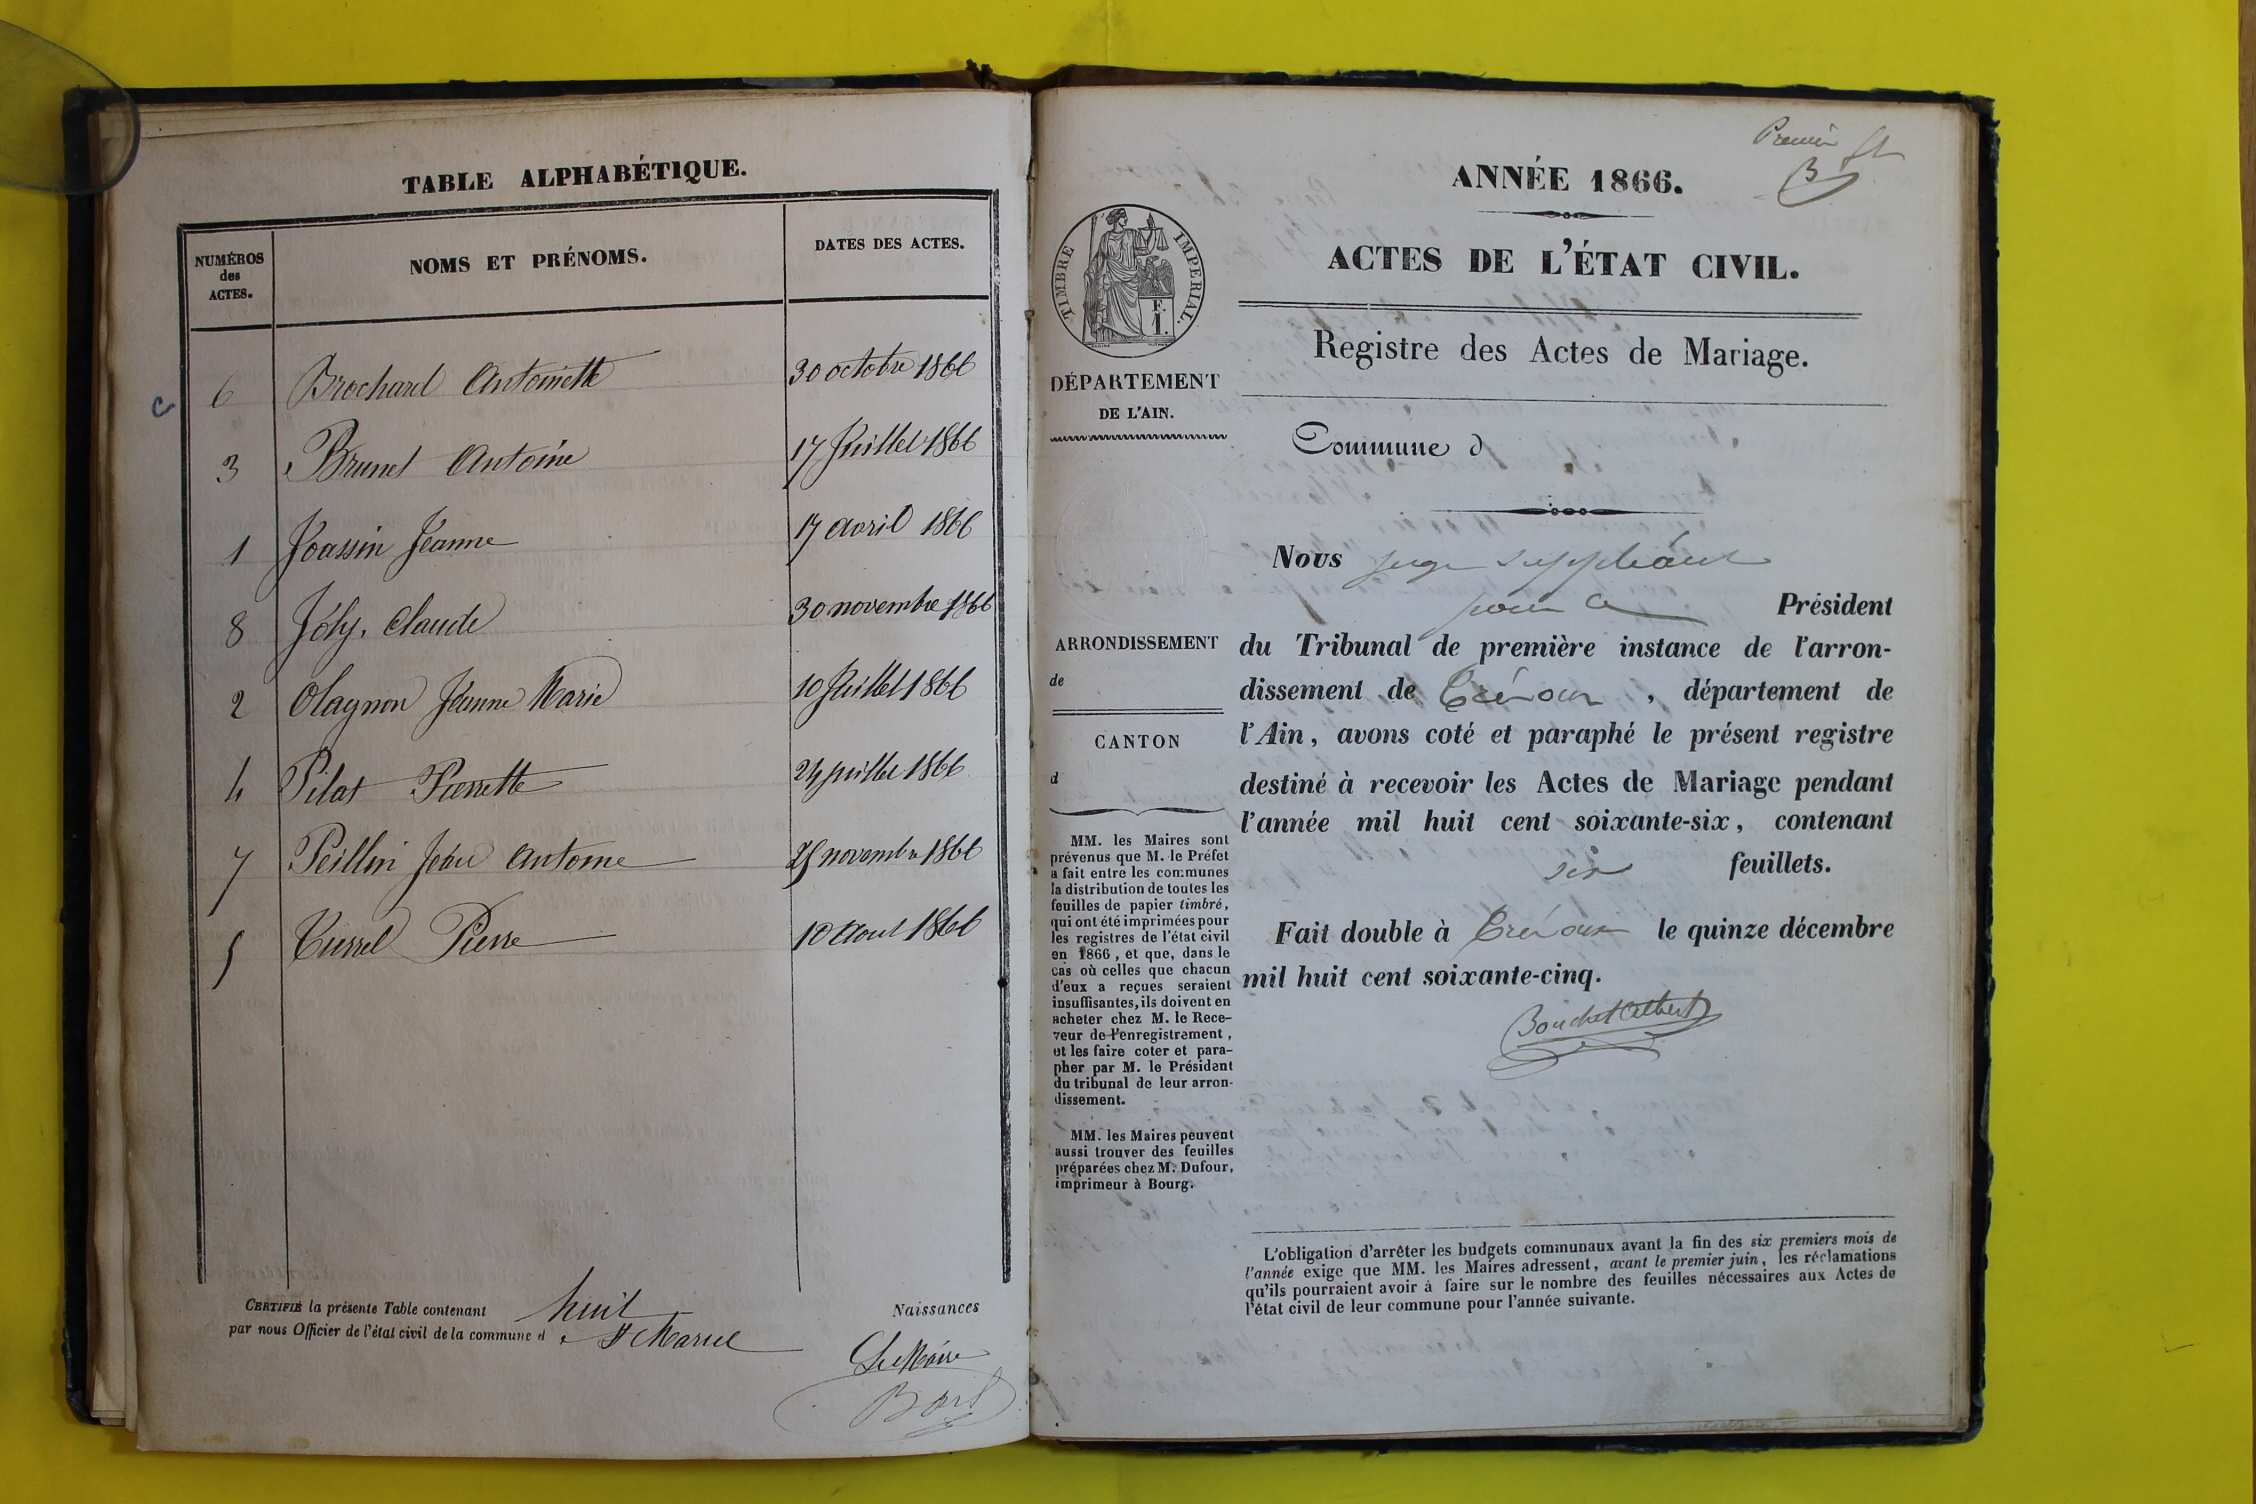 TABLE ALPHABÉTIQUE.
NUMÉROS
des
ACTES.
NOMS ET PRÉNOMS.
DATES DES ACTES.
6 Brochard Antoinette 30 octobre 1866
3 Brunet Antoine 17 Juillet 1866
1 Joassin Jeanne 17 avril 1866
8 Joly, Claude 30 novembre 1866
2 Olagnon Jeanne Marie 10 Juillet 1866
4 Pilat Pierrette 24 juillet 1866
7 Peillon Jean Antoine 25 novembre 1866
5 Pierre 10 Aout 1866
CERTIFIÉ la présente Table contenant huit Naissances
par nous Officier de l'état civil de la commune d St Marcel
Le Maire
Premier
ANNÉE 1866.
ACTES DE L'ÉTAT CIVIL.
Registre des Actes de Mariage.
TIMBRE IMPERIAL.
F.
1.
DÉPARTEMENT
DE L'AIN.
Commune d
Nous juge suppléant
pour le Président
ARRONDISSEMENT
de
CANTON
d
du Tribunal de première instance de l'arron-
dissement de Trévoux, département de
l'Ain, avons coté et paraphé le présent registre
destiné à recevoir les Actes de Mariage pendant
l'année mil huit cent soixante-six, contenant
six feuillets.
Fait double à Trévoux le quinze décembre
mil huit cent soixante-cinq.
Bouchet Albert
MM. les Maires sont
prévenus que M. le Préfet
a fait entre les communes
la distribution de toutes les
feuilles de papier timbré,
qui ont été imprimées pour
les registres de l'état civil
en 1866, et que, dans le
cas où celles que chacun
d'eux a reçues seraient
insuffisantes, ils doivent en
acheter chez M. le Rece-
veur de l'enregistrement,
et les faire coter et para-
pher par M. le Président
du tribunal de leur arron-
dissement.
MM. les Maires peuvent
aussi trouver des feuilles
préparées chez M. Dufour,
imprimeur à Bourg.
L'obligation d'arrêter les budgets communaux avant la fin des six premiers mois de
l'année exige que MM. les Maires adressent, avant le premier juin, les réclamations
qu'ils pourraient avoir à faire sur le nombre des feuilles nécessaires aux Actes de
l'état civil de leur commune pour l'année suivante.